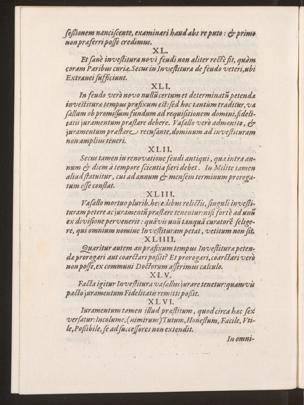 sessionem nanciscente, examinari haud abs re puto: & primo
non præferri posse credimus.
XL.
Et sanè investitura novi feudi non aliter rectè sit, quàm
coram Paribus curiæ. Secus in Investitura de feudo veteri, ubi
Extranei sufficiunt.
XLI.
In feudo verò novo nullũ certum et determinatũ petenda
investitura tempus præfixum est: sed hoc tantùm traditur, va
sallum ob promissum fundum ad requisitionem domini, fideli-
tatis juramentum præstare debere. Vasallo verò admonito, &
juramentum præstare recusante, dominum ad investituram
non amplius teneri.
XLII.
Secus tamen in renovatione feudi antiqui, quæ intra an-
num & diem à tempore scientiæ fieri debet. In Milite tamen
aliud statuitur, cui ad annum & mensem terminum proroga-
tum esse constat.
XLIII.
Vasallo mortuo pluribus heredibus relictis, singuli investi-
turam petere ac juramentũ præstare tenentur: nisi fortè ad unũ
ex divisione pervenerit: quévis unũ tanquã curatorẽ selige-
re, qui omnium nomine Investituram petat, vetitum non sit.
XLIIII.
Quæritur autem an præfixum tempus Investituræ peten-
da prorogari aut coarctari possit? Et prorogari, coarctari verò
non posse, ex communi Doctorum asserimus calculo.
XLV.
Facta igitur Investitura vasallus jurare tenetur: quamvis
pacto juramentum Fidelitatis remitti possit.
XLVI.
Iuramentum tamen illud præstitum, quod circa hæc sex
versatur: Incolume, (nimirum) Tutum, Honestum, Facile, Vti-
le, Possibile, se ad successores non extendit.
In omni-